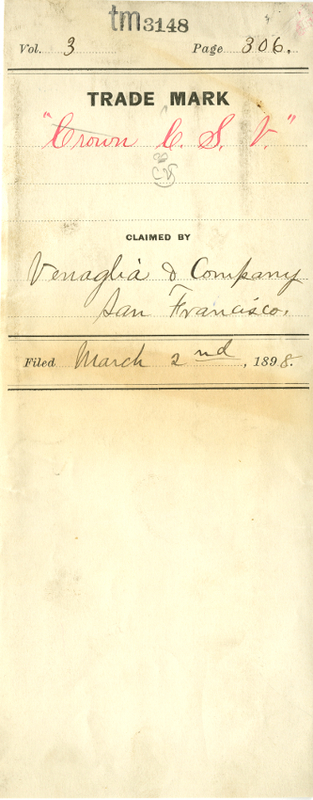 tm3148
Vol. 3 Page 306.
TRADE MARK
"Crown C. S. V."
CLAIMED BY
Venaglia & Company
San Francisco.
Filed March 2nd, 1898.